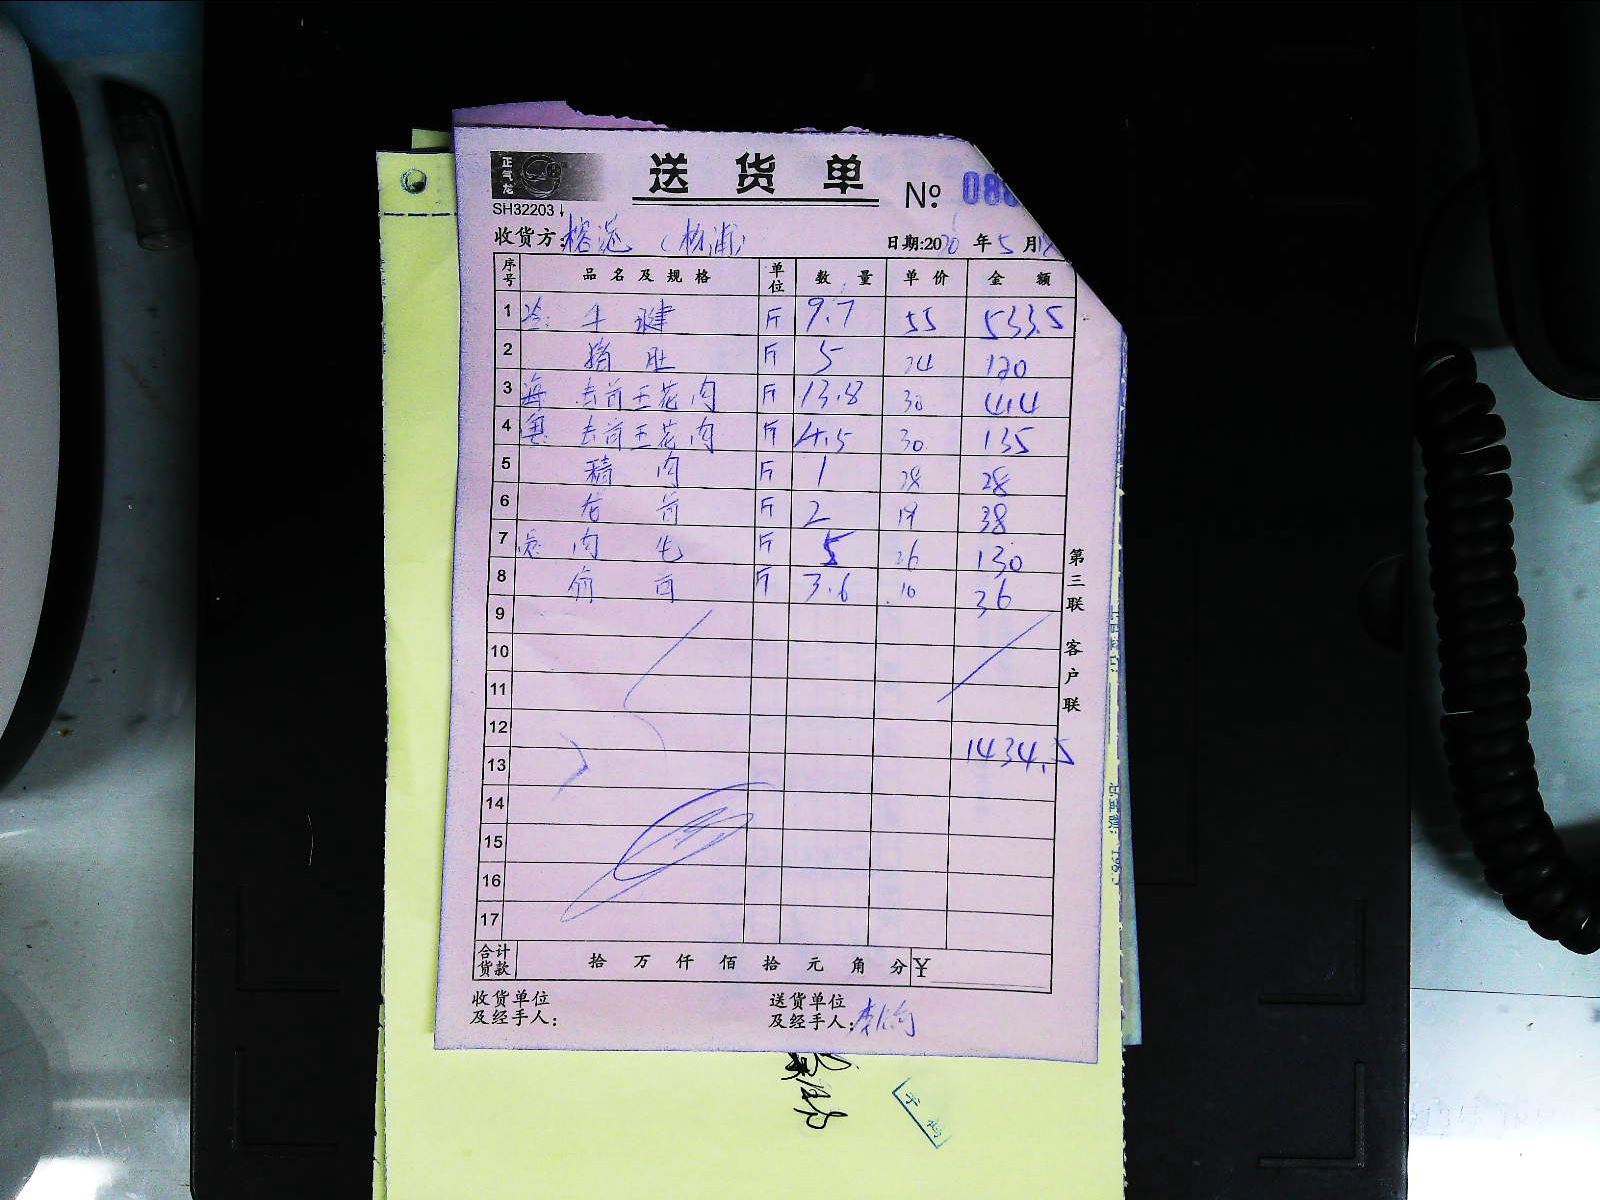 正气龙
送货单
№ 080
SH32203
收货方: (杨浦)
日期:2020 年 5 月
序号 品名及规格 单位 数量 单价 金额
1 牛腱 斤 9.7 55 533.5
2 猪肚 斤 5 24 120
3 海 去骨五花肉 斤 13.8 30 414
4 奥 去骨五花肉 斤 4.5 30 135
5 精肉 斤 1 28 28
6 龙骨 斤 2 19 38
7 肉 斤 5 26 130
8 斤 3.6 10 36
9
10
11
12
1434.5
13
14
15
16
17
合计货款 拾 万 仟 佰 拾 元 角 分 ¥
收货单位
及经手人:
送货单位
及经手人: 李
第三联 客户联